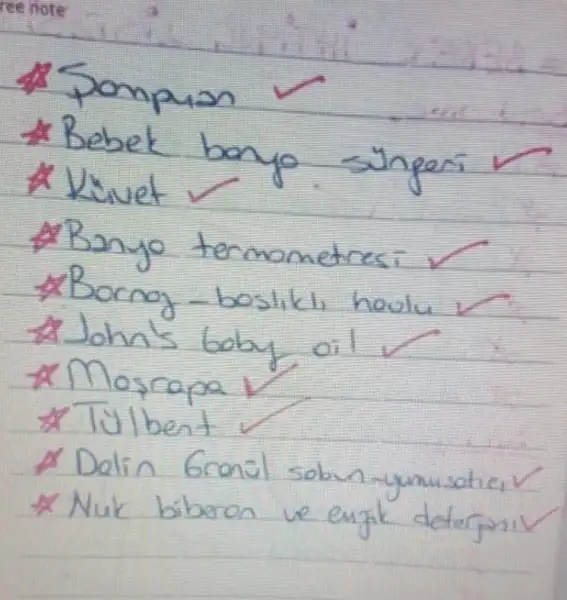 ree note
Şampuan
Bebek banyo süngeri
Küvet
Banyo termometresi
Bornoz - başlıklı havlu
John's baby oil
Maşrapa
Tülbent
Dalin Granül sabun - yumuşatıcı
Nuk biberon ve emzik deterjanı